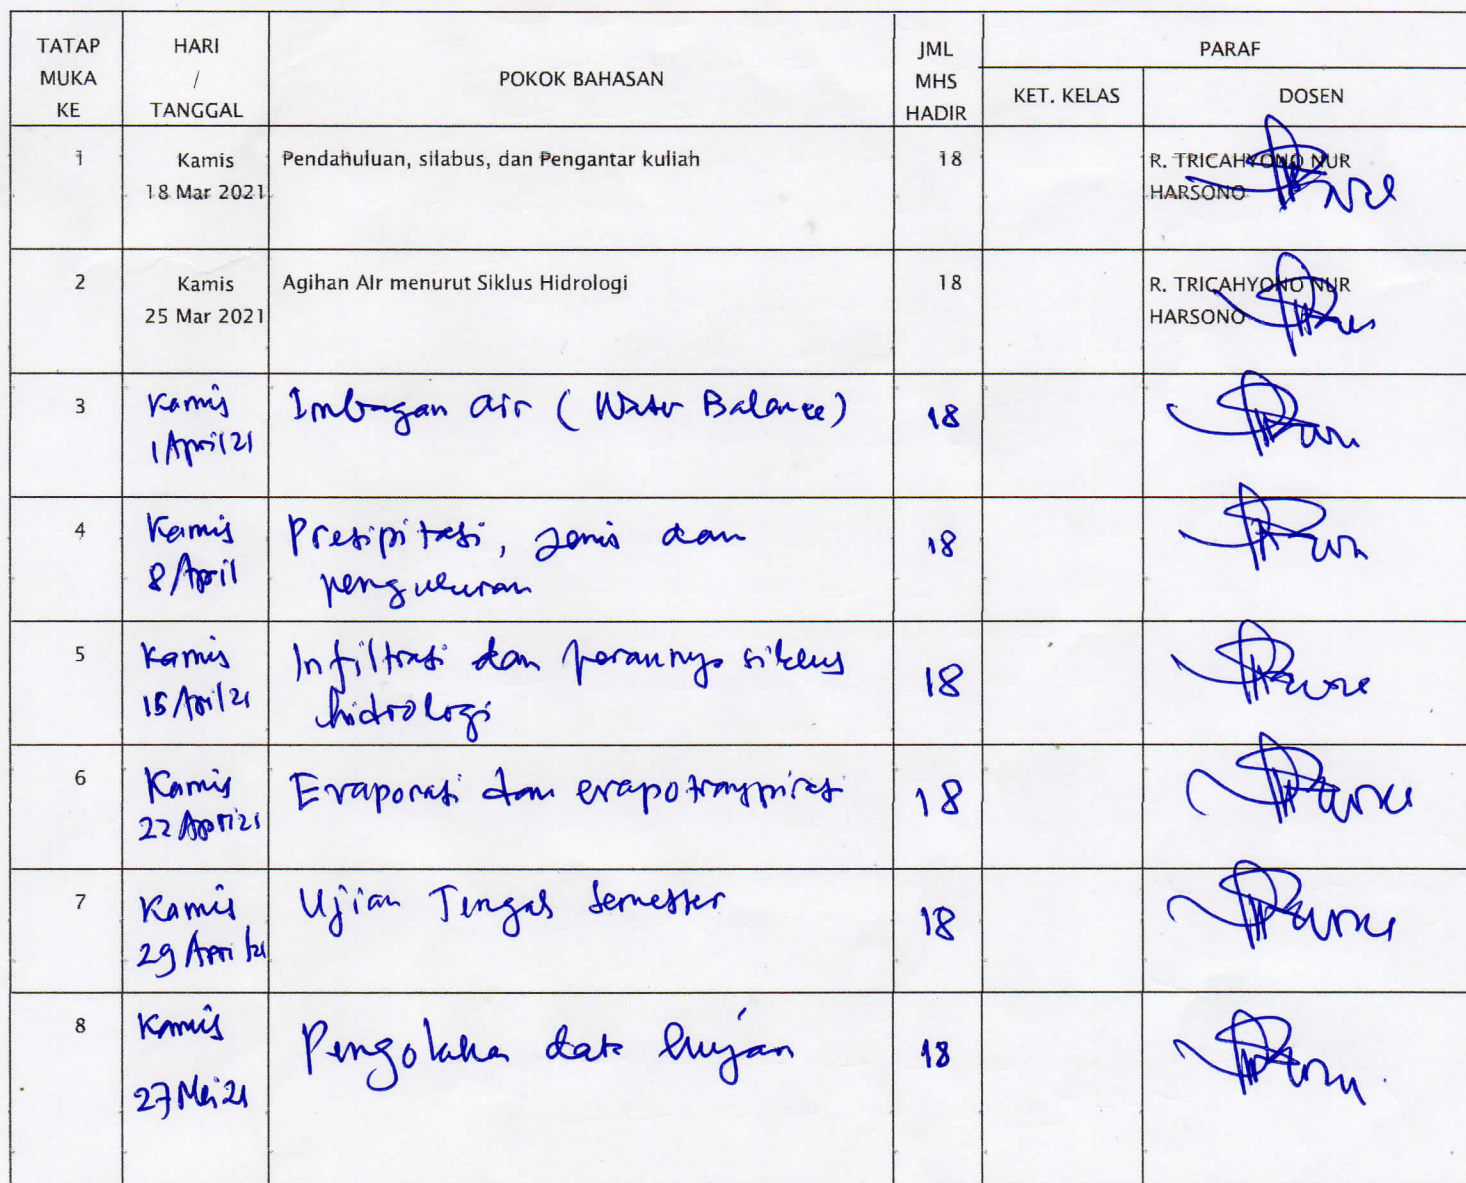 TATAP MUKA KE
HARI / TANGGAL
POKOK BAHASAN
JML MHS HADIR
PARAF
KET. KELAS
DOSEN
1
Kamis
18 Mar 2021
Pendahuluan, silabus, dan Pengantar kuliah
18
R. TRICAHYONO NUR
HARSONO
2
Kamis
25 Mar 2021
Agihan AIr menurut Siklus Hidrologi
18
R. TRICAHYONO NUR
HARSONO
3
Kamis
1 April 21
Imbangan air (Water Balance)
18
4
Kamis
8 April
Presipitasi, Jenis dan
pengukuran
18
5
Kamis
15 April 21
Infiltrasi dan perannya siklus
hidrologi
18
6
Kamis
22 April 21
Evaporasi dan evapotranspirasi
18
7
Kamis
29 April 21
Ujian Tengah Semester
18
8
Kamis
27 Mei 21
Pengolahan data hujan
18